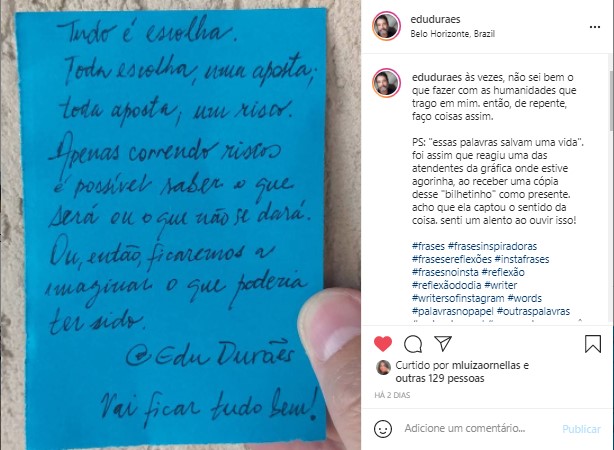 Tudo é escolha.
Toda escolha, uma aposta;
toda aposta, um risco.
Apenas correndo riscos
é possível saber o que
será ou o que não se dará.
Ou, então, ficaremos a
imaginar o que poderia
ter sido.
@Edu Durães
Vai ficar tudo bem!
eduduraes
Belo Horizonte, Brazil
eduduraes às vezes, não sei bem o
que fazer com as humanidades que
trago em mim. então, de repente,
faço coisas assim.
PS: "essas palavras salvam uma vida".
foi assim que reagiu uma das
atendentes da gráfica onde estive
agorinha, ao receber uma cópia
desse "bilhetinho" como presente.
acho que ela captou o sentido da
coisa. senti um alento ao ouvir isso!
#frases #frasesinspiradoras
#frasesereflexões #instafrases
#frasesnoinsta #reflexão
#reflexãododia #writer
#writersofinstagram #words
#palavrasnopapel #outraspalavras
Curtido por mluizaornellas e
outras 129 pessoas
HÁ 2 DIAS
Adicione um comentário...
Publicar